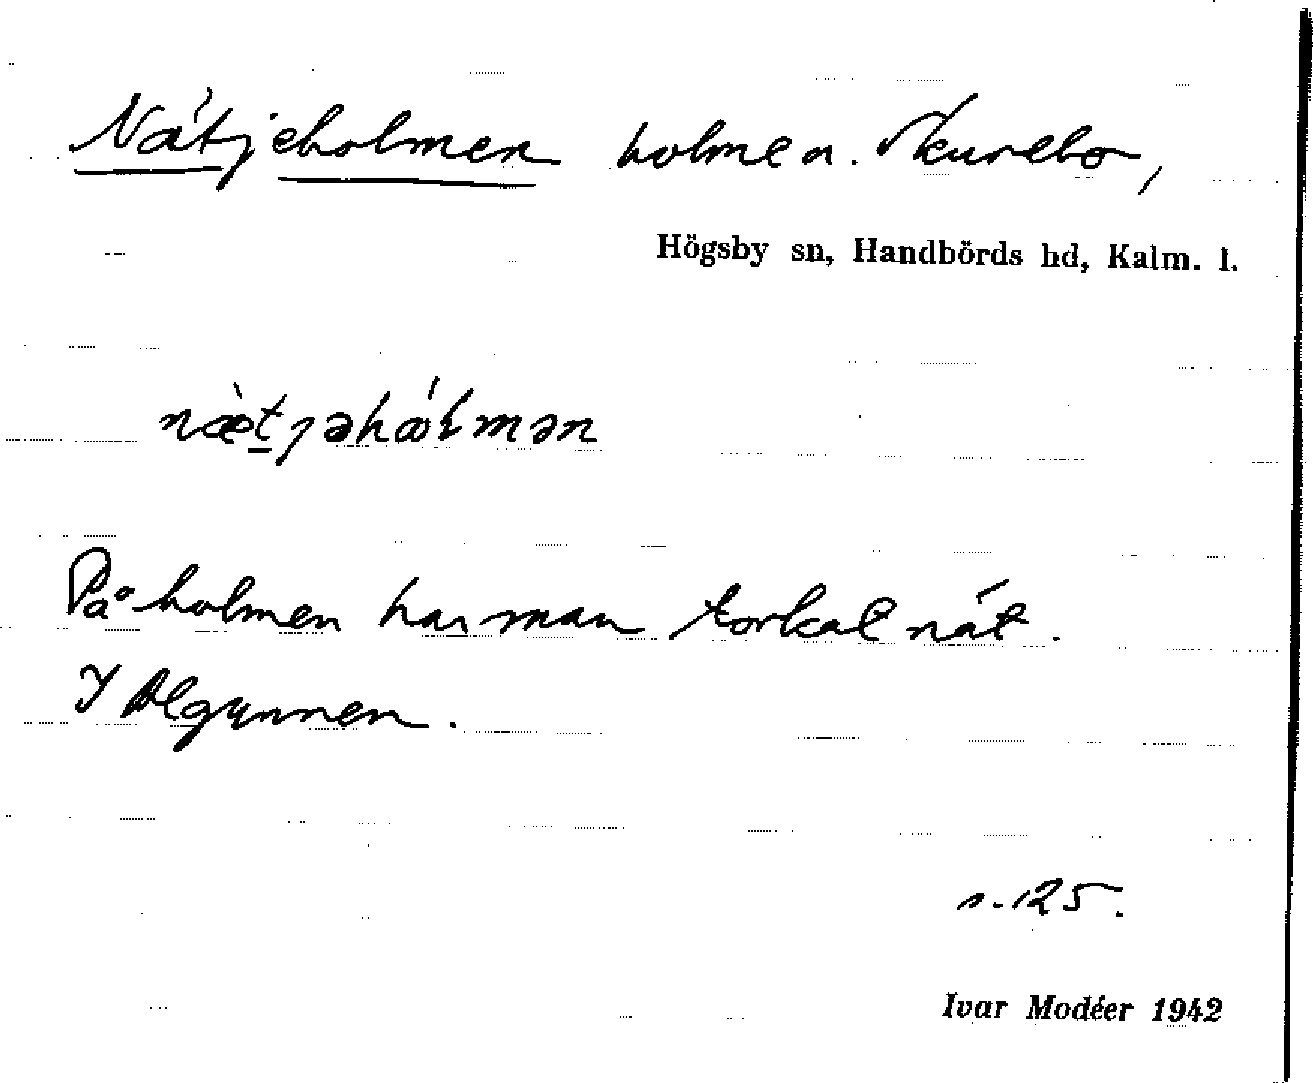 Nätjeholmen holme n. Skurebo,
Högsby sn, Handbörds hd, Kalm. l.
næ̀tjəhólmən
På holmen har man torkat nät.
I Algunnen.
s. 125.
Ivar Modéer 1942